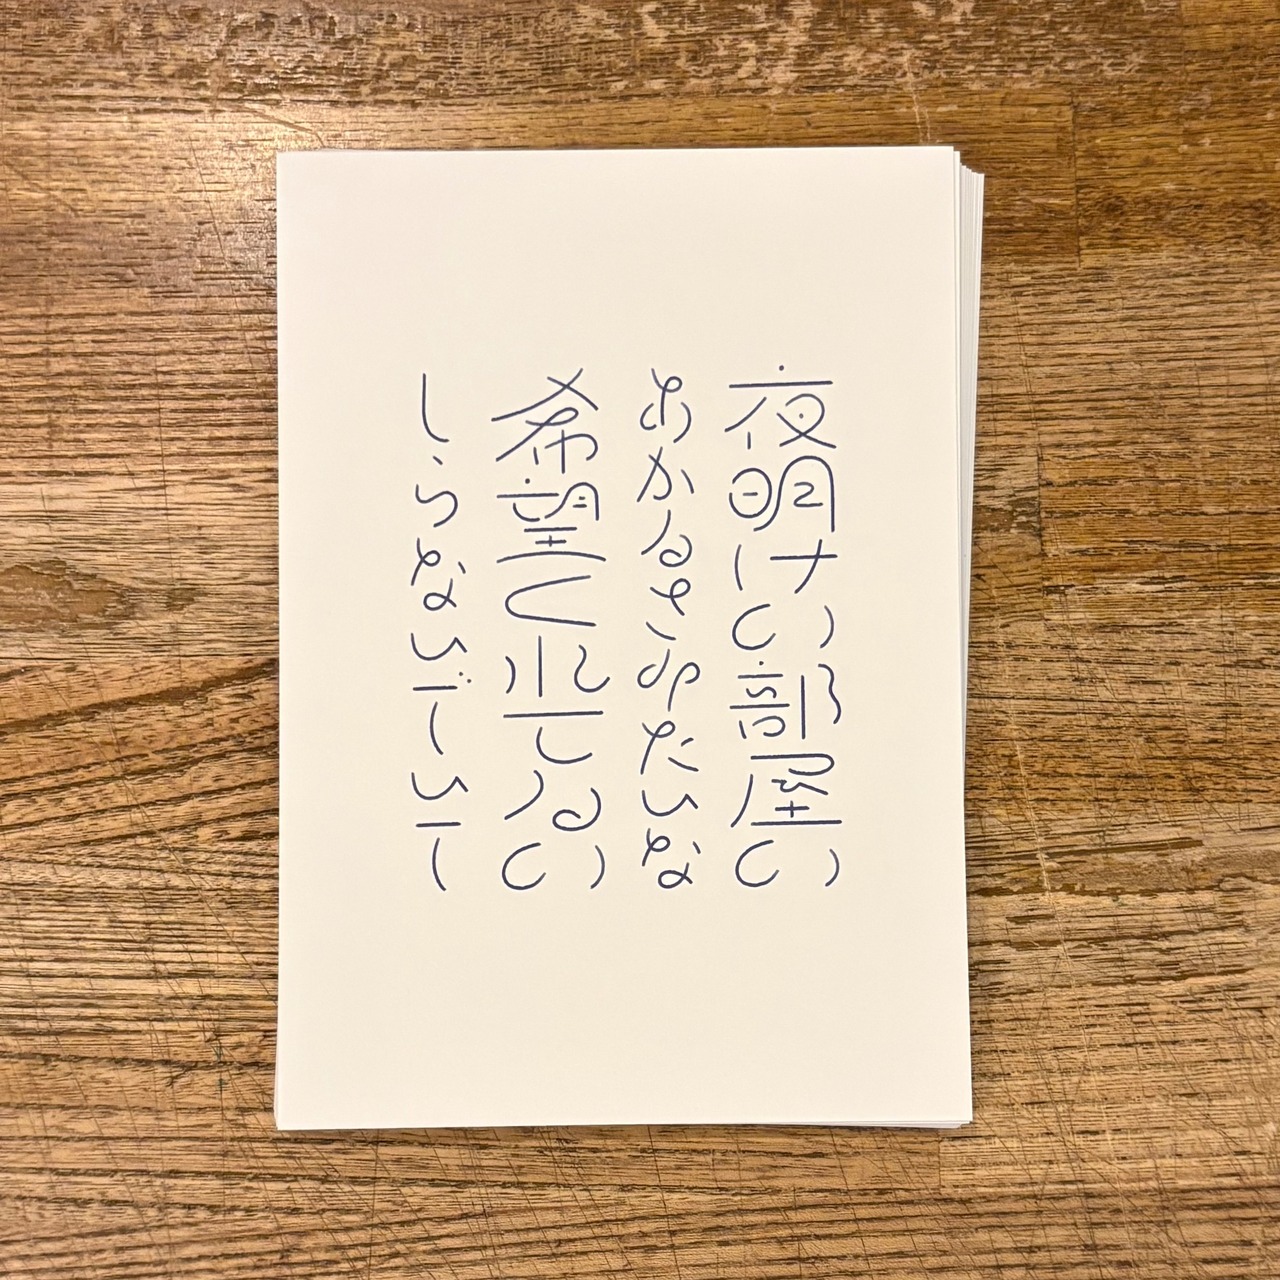 夜明けの部屋の
あかるさみたいな
希望くれてるの
しらないでいて